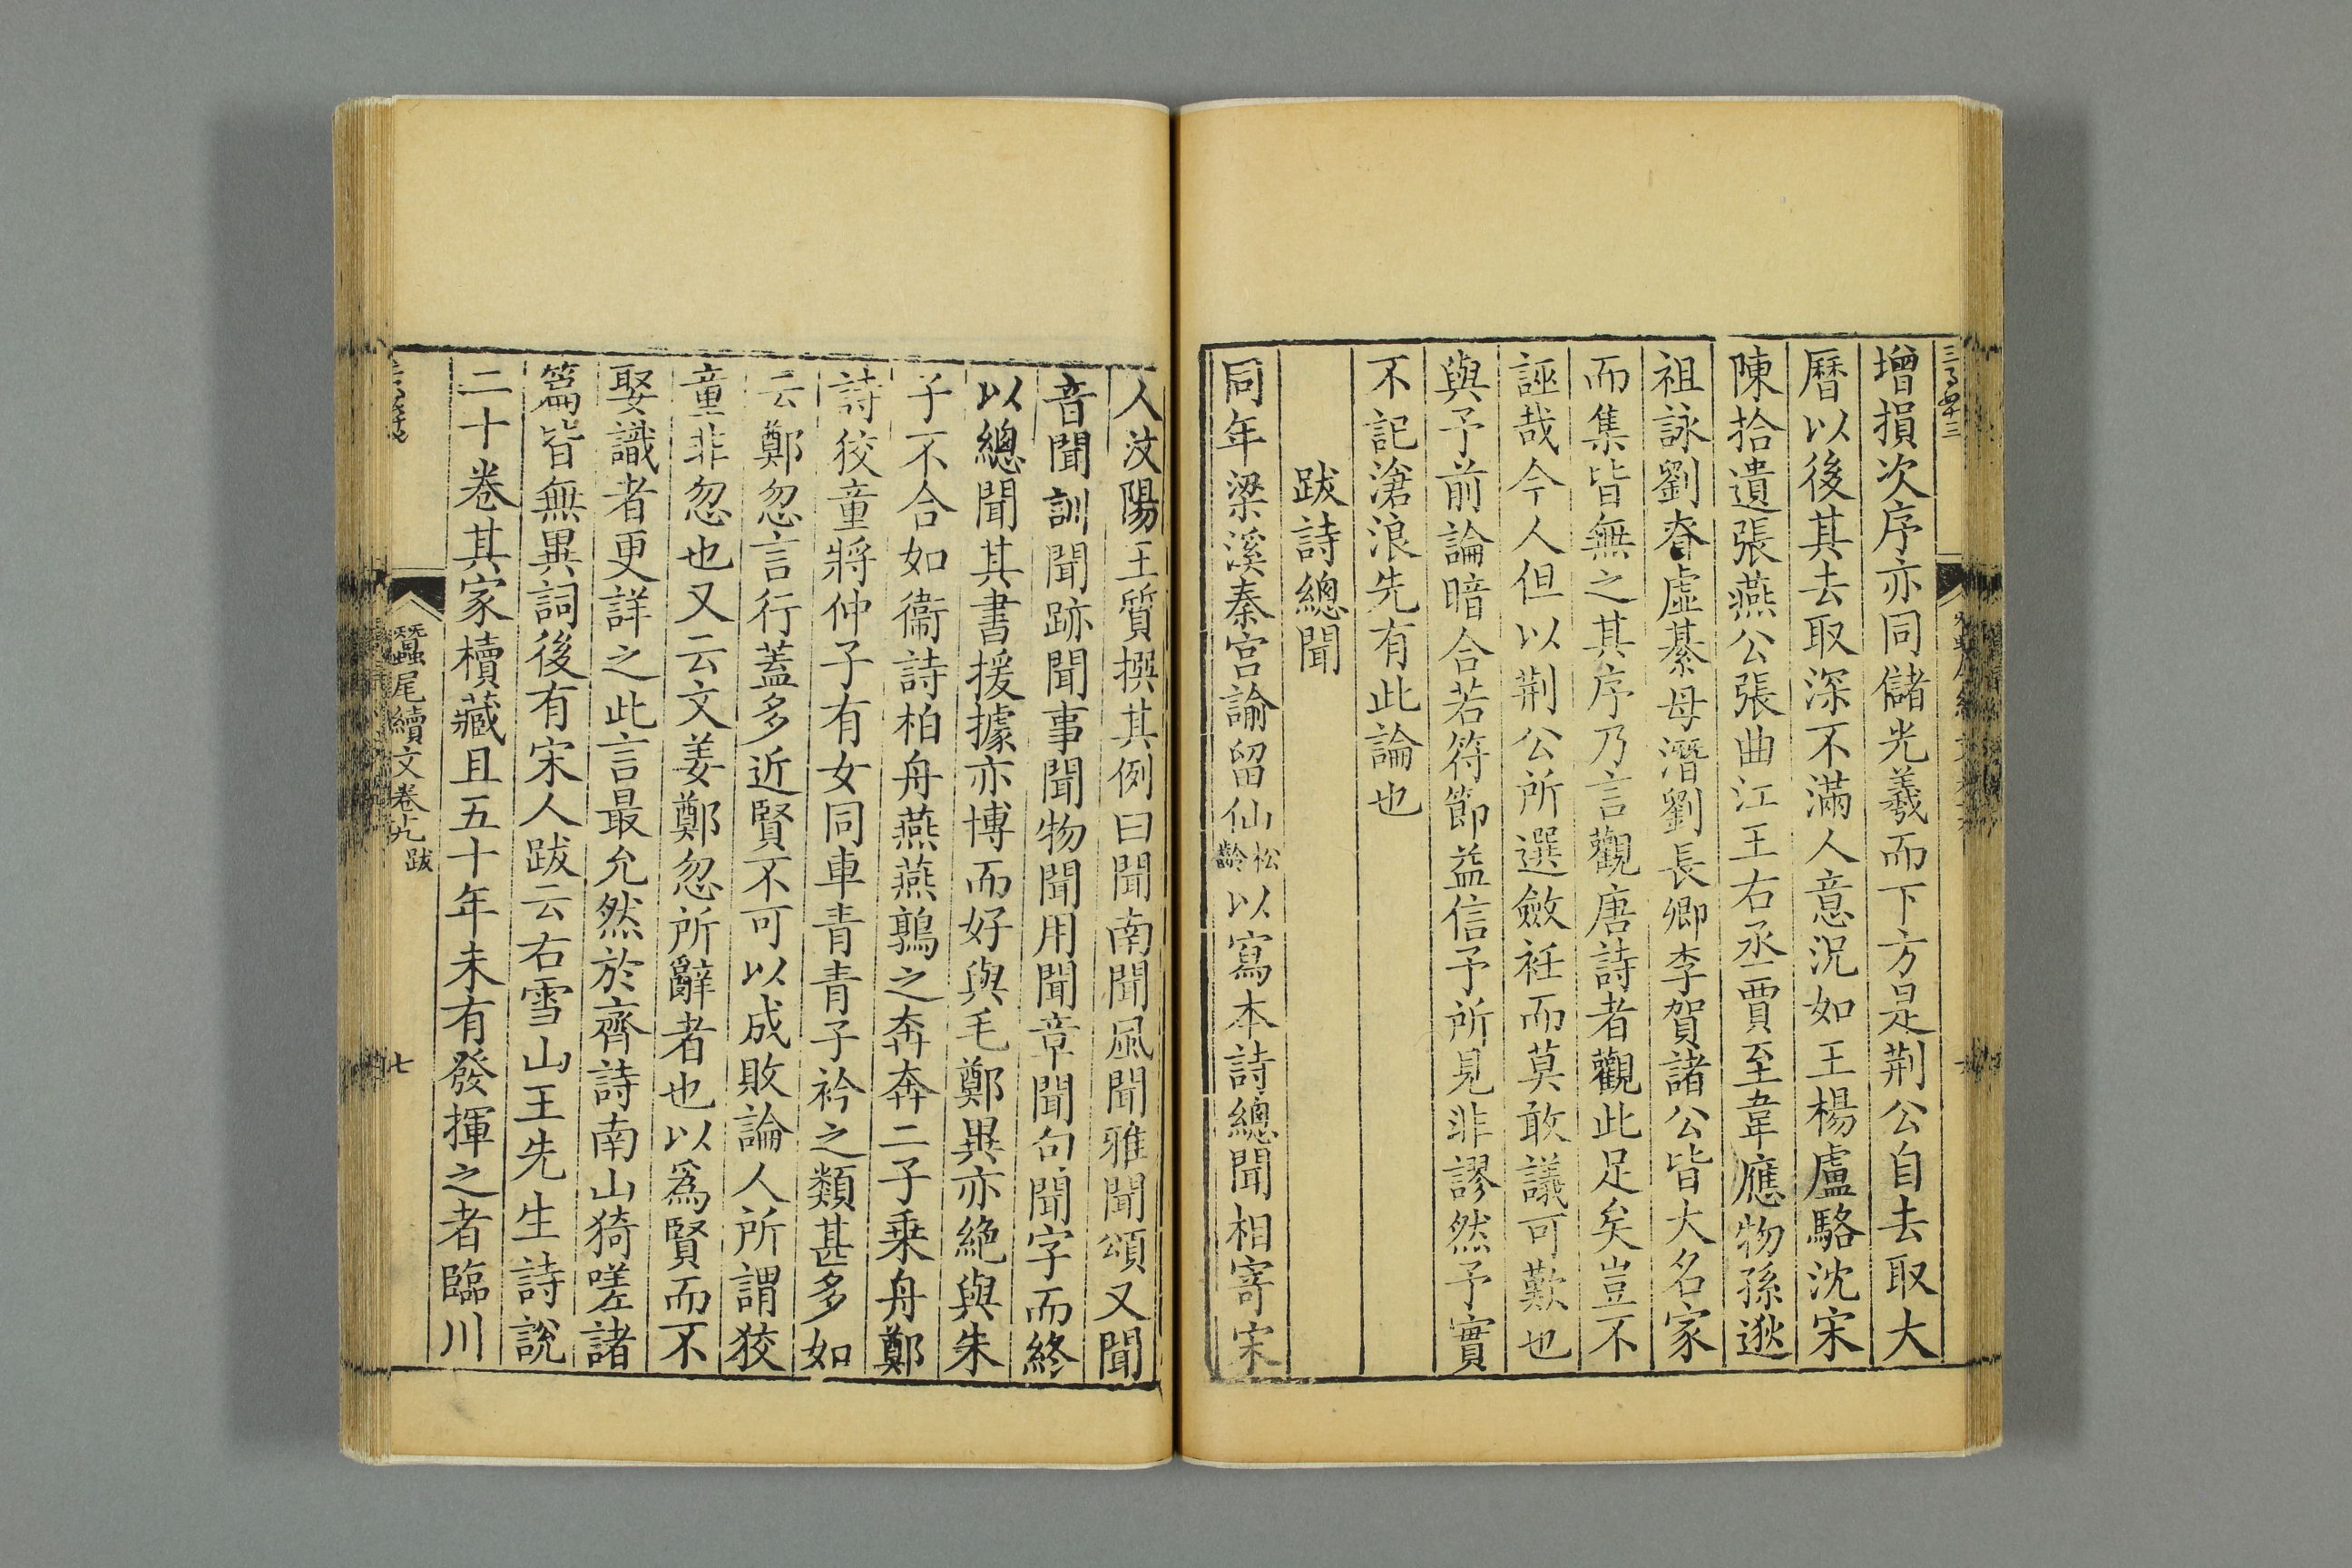 增損次序亦同儲光羲而下方是荆公自去取大
曆以後其去取深不滿人意況如王楊盧駱沈宋
陳拾遺張燕公張曲江王右丞賈至韋應物孫逖
祖詠劉眘虛綦毋潛劉長卿李賀諸公皆大名家
而集皆無之其序乃言觀唐詩者觀此足矣豈不
誣哉今人但以荆公所選斂衽而莫敢議可歎也
與予前論暗合若符節益信予所見非謬然予實
不記滄浪先有此論也
跋詩總聞
同年梁溪秦宮諭留仙松齡以寫本詩總聞相寄宋
人汶陽王質撰其例曰聞南聞風聞雅聞頌又聞
音聞訓聞跡聞事聞物聞用聞章聞句聞字而終
以總聞其書援據亦博而好與毛鄭異亦絶與朱
子不合如衞詩柏舟燕燕鶉之奔奔二子乗舟鄭
詩狡童將仲子有女同車青青子衿之類甚多如
云鄭忽言行蓋多近賢不可以成敗論人所謂狡
童非忽也又云文姜鄭忽所辭者也以爲賢而不
娶識者更詳之此言最允然於齊詩南山猗嗟諸
篇皆無異詞後有宋人跋云右雪山王先生詩說
二十卷其家櫝藏且五十年未有發揮之者臨川
蠶尾續文卷十九 跋
七